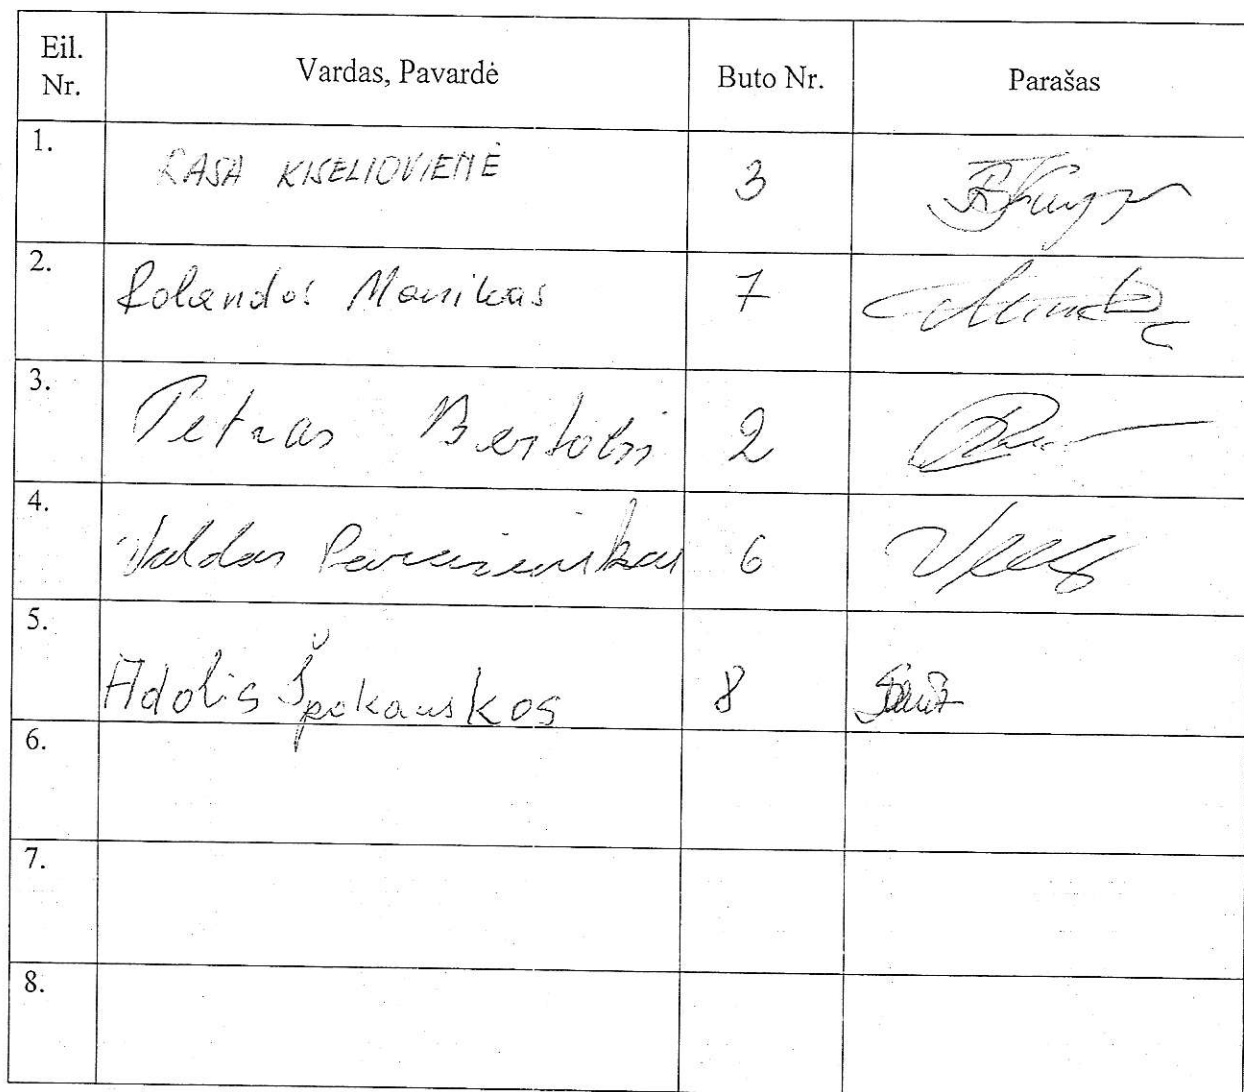 Eil. Nr. Vardas, Pavardė Buto Nr. Parašas
1. RASA KISELIOVIENĖ 3
2. Rolandas Manikas 7
3. Petras 2
4. Valdas 6
5. Adolis Špokauskos 8
6.
7.
8.